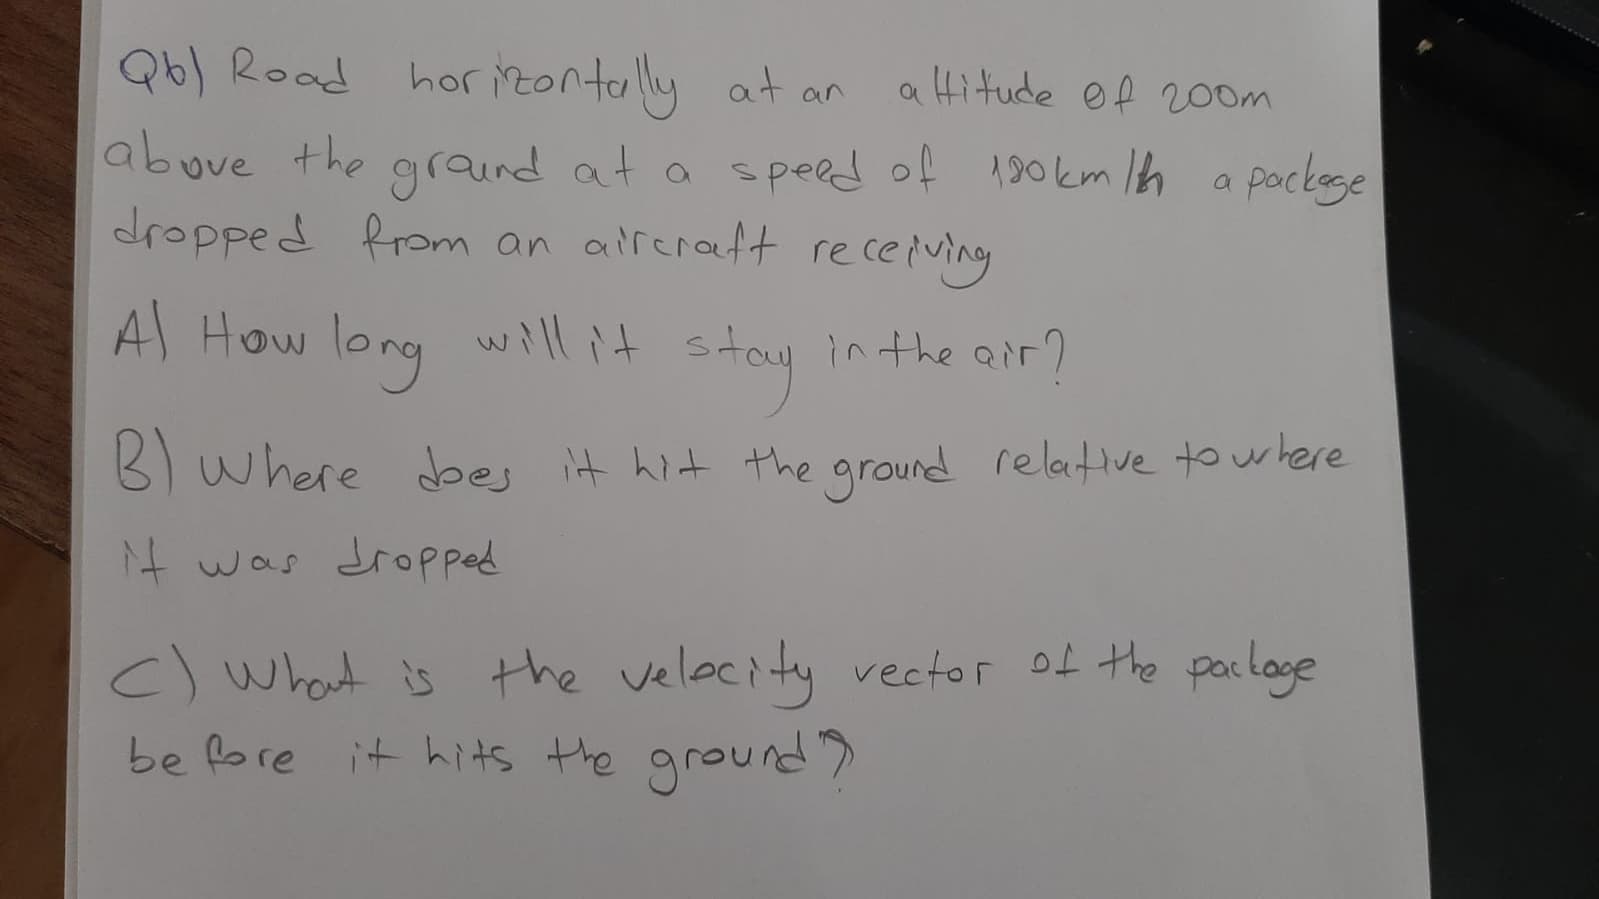 Q6) Road horizontally at an altitude of 200m
above the ground at a speed of 180km/h a package
dropped from an aircraft receiving
A) How long will it stay in the air?
B) Where does it hit the ground relative to where
it was dropped
C) What is the velocity vector of the package
before it hits the ground?